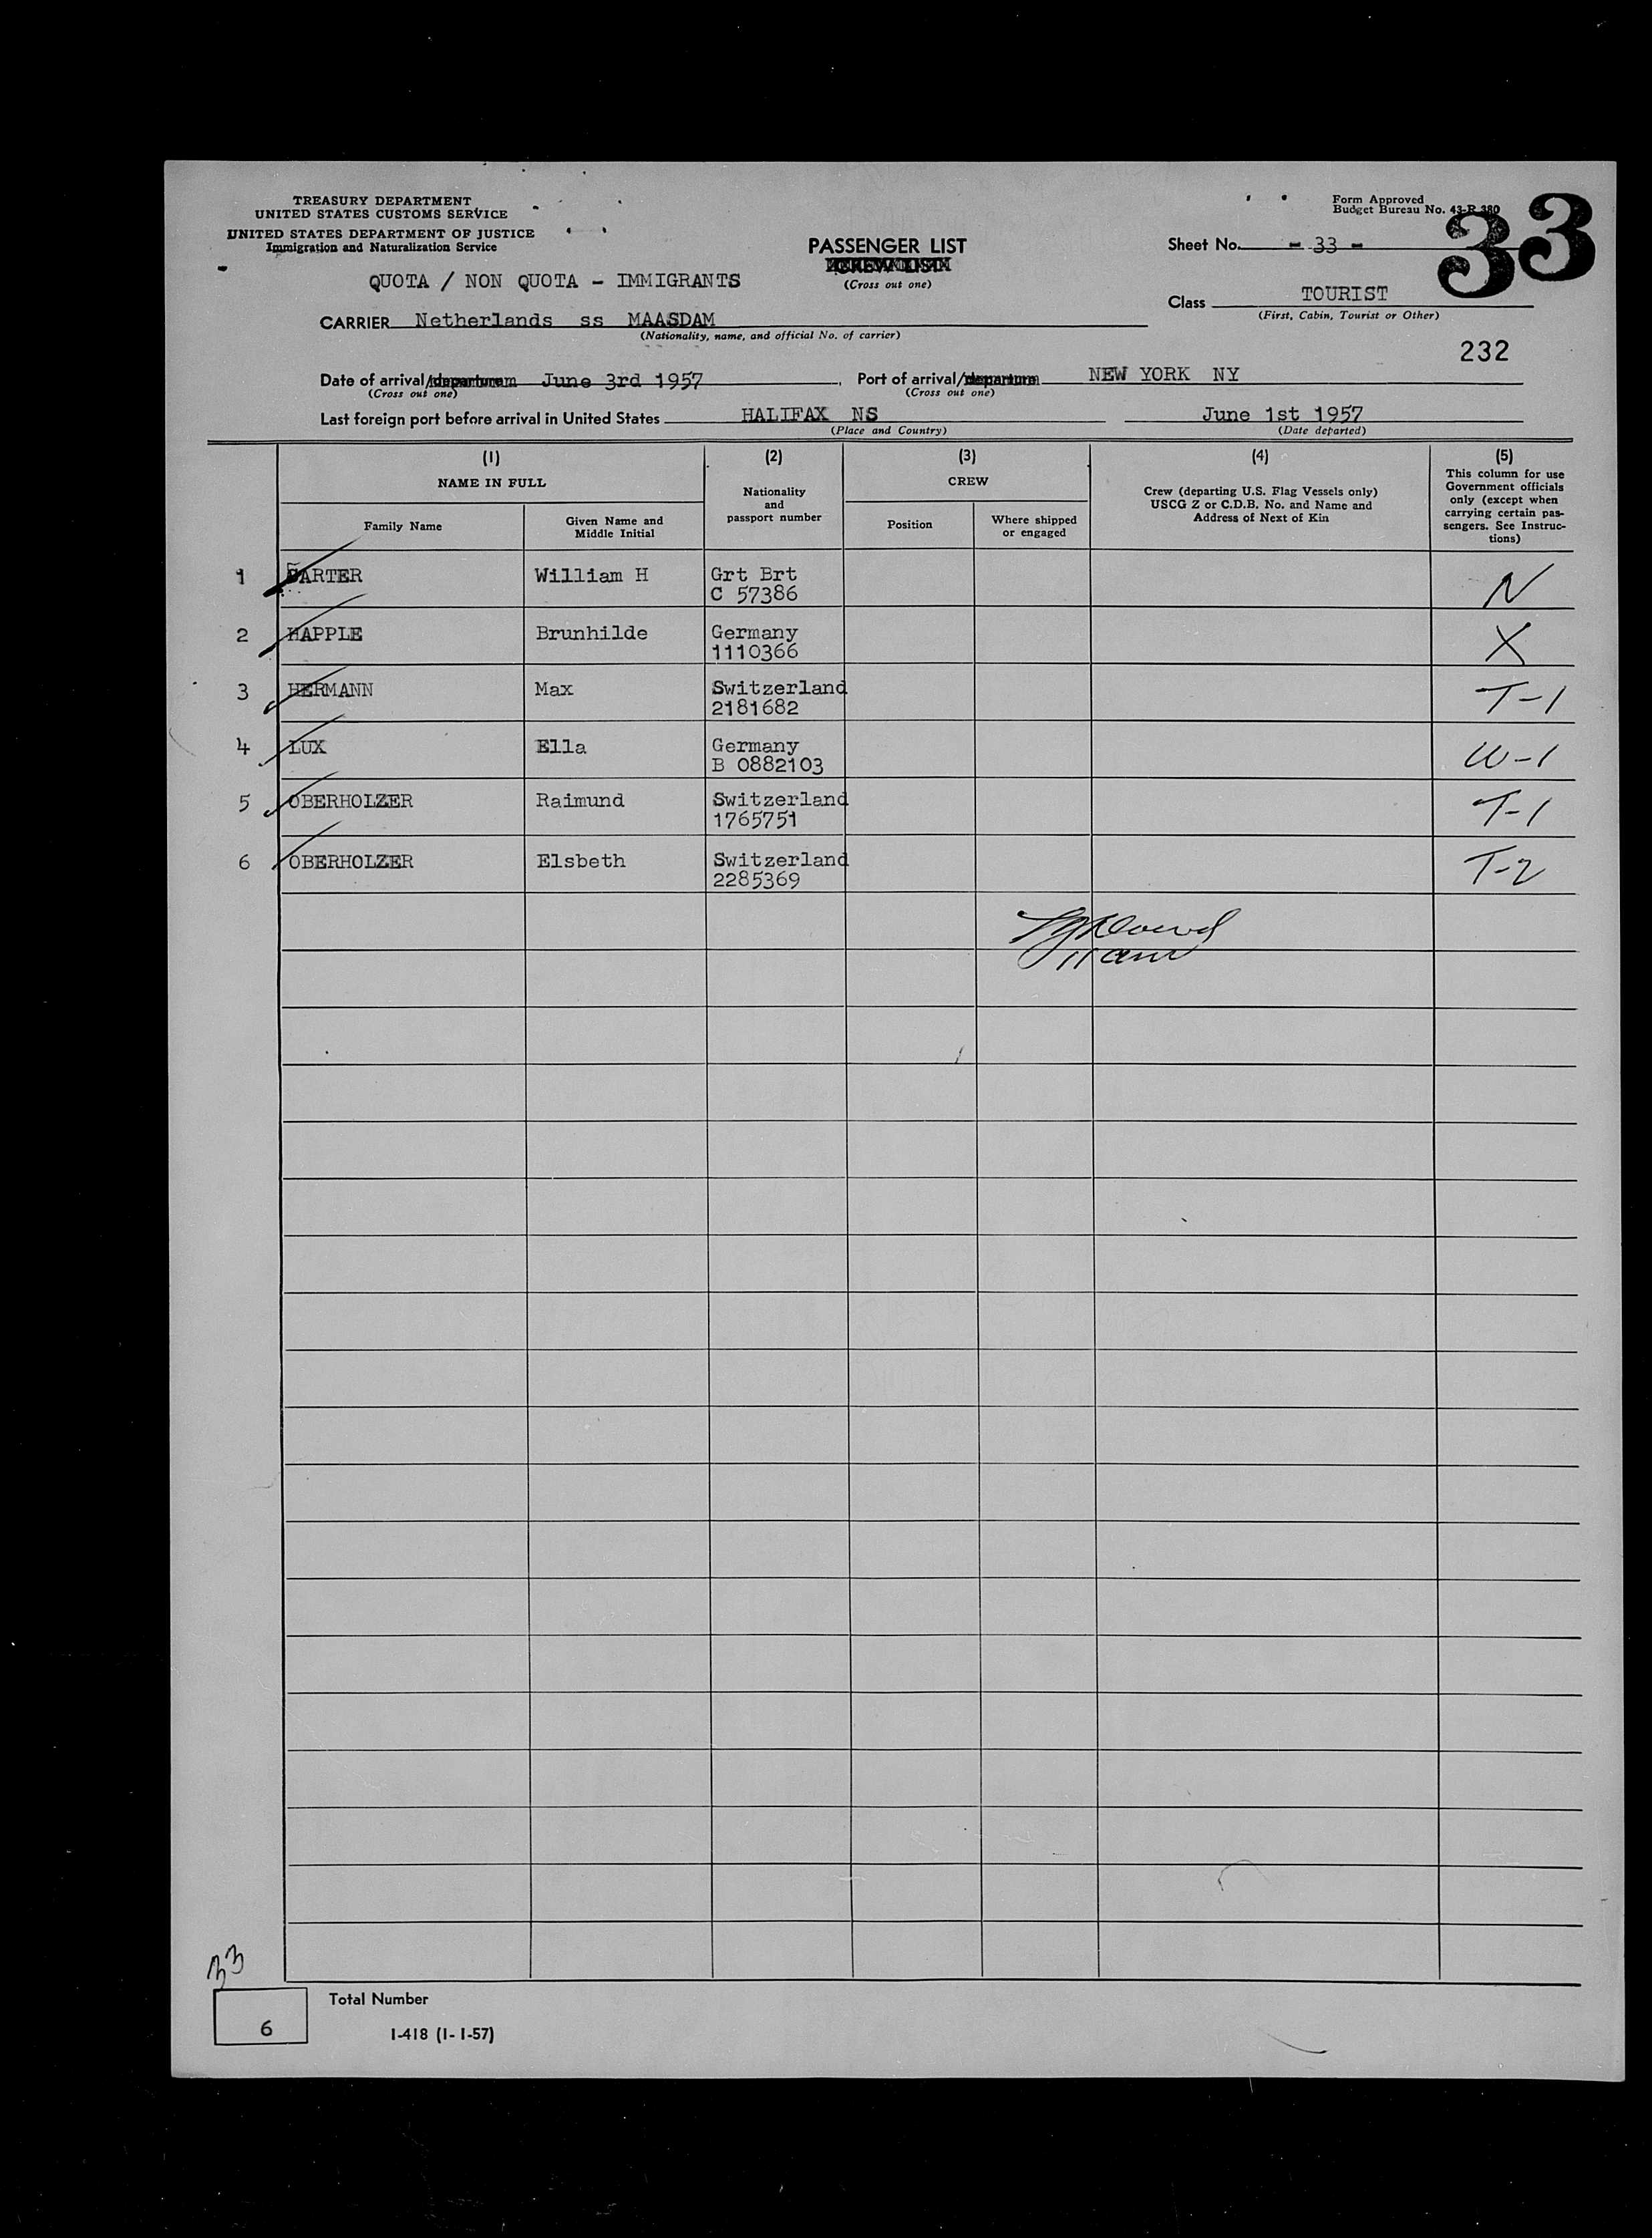 TREASURY DEPARTMENT
UNITED STATES CUSTOMS SERVICE
UNITED STATES DEPARTMENT OF JUSTICE
Immigration and Naturalization Service
Form Approved
Budget Bureau No. 43-R 380
33
PASSENGER LIST
CREW LIST
(Cross out one)
Sheet No. - 33 -
QUOTA / NON QUOTA - IMMIGRANTS
Class TOURIST
(First, Cabin, Tourist or Other)
CARRIER Netherlands ss MAASDAM
(Nationality, name, and official No. of carrier)
232
Date of arrival/departure June 3rd 1957, Port of arrival/departure NEW YORK NY
(Cross out one) (Cross out one)
Last foreign port before arrival in United States HALIFAX NS June 1st 1957
(Place and Country) (Date departed)
(1) (2) (3) (4) (5)
NAME IN FULL
Nationality
and
passport number
CREW
Crew (departing U.S. Flag Vessels only)
USCG Z or C.D.B. No. and Name and
Address of Next of Kin
This column for use
Government officials
only (except when
carrying certain pas-
sengers. See Instruc-
tions)
Family Name
Given Name and
Middle Initial
Position
Where shipped
or engaged
1 CARTER William H Grt Brt N
C 57386
2 HAPPLE Brunhilde Germany X
1110366
3 HERMANN Max Switzerland T-1
2181682
4 LUX Ella Germany W-1
B 0882103
5 OBERHOLZER Raimund Switzerland T-1
1765751
6 OBERHOLZER Elsbeth Switzerland T-2
2285369
33
6
Total Number
I-418 (1-1-57)